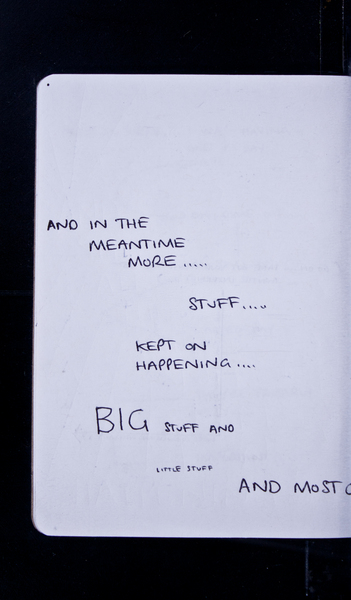 AND IN THE
MEANTIME
MORE .....
STUFF....
KEPT ON
HAPPENING ....
BIG STUFF AND
LITTLE STUFF
AND MOST